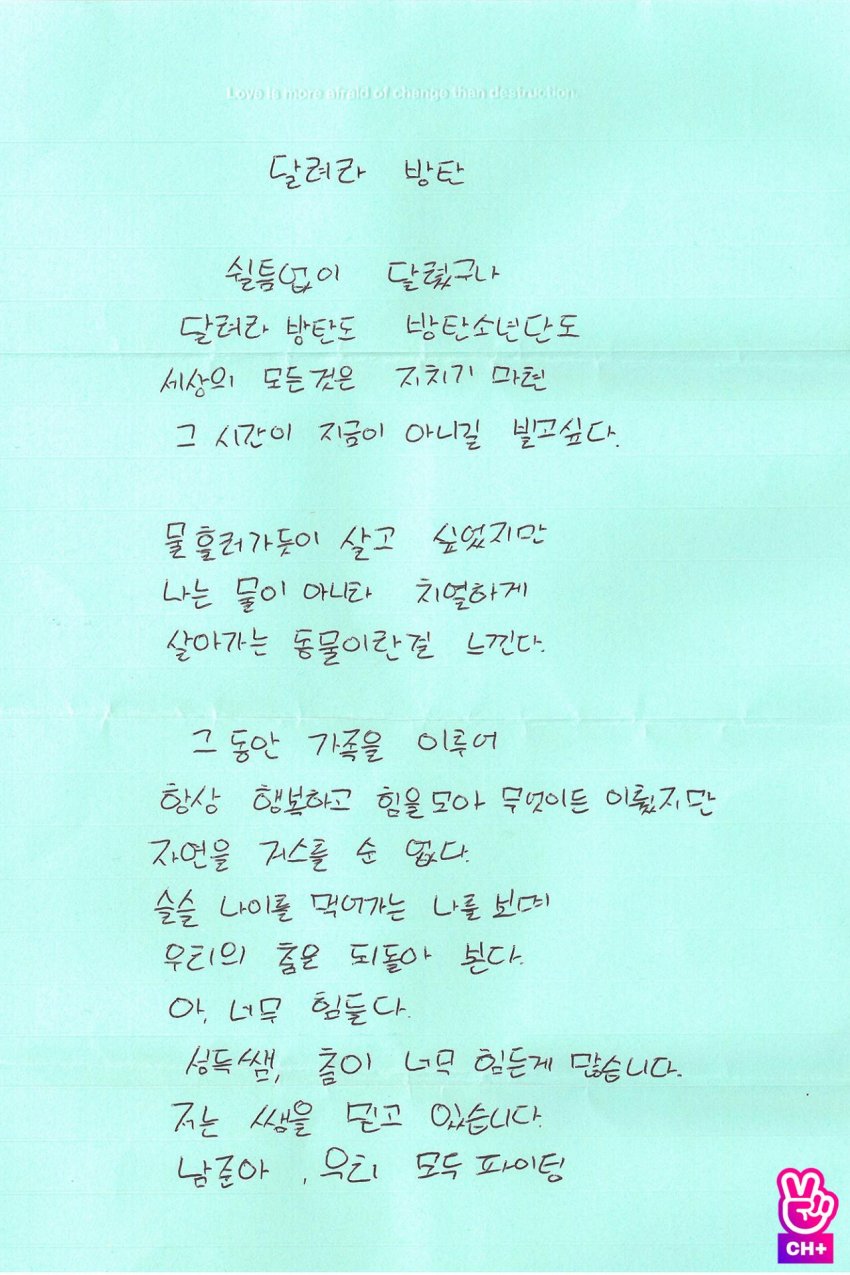 Love is more afraid of change than destruction.
달려라 방탄
쉴틈없이 달렸구나
달려라 방탄도 방탄소년단도
세상의 모든것은 지치기 마련
그 시간이 지금이 아니길 빌고싶다.
물흘러가듯이 살고 싶었지만
나는 물이 아니라 치열하게
살아가는 동물이란걸 느낀다.
그동안 가족을 이루어
항상 행복하고 힘을모아 무엇이든 이뤘지만
자연을 거스를 순 없다.
슬슬 나이를 먹어가는 나를보며
우리의 춤을 되돌아 본다.
아, 너무 힘들다.
성득쌤, 춤이 너무 힘든게 많습니다.
저는 쌤을 믿고 있습니다.
남준아, 우리 모두 파이팅
CH+